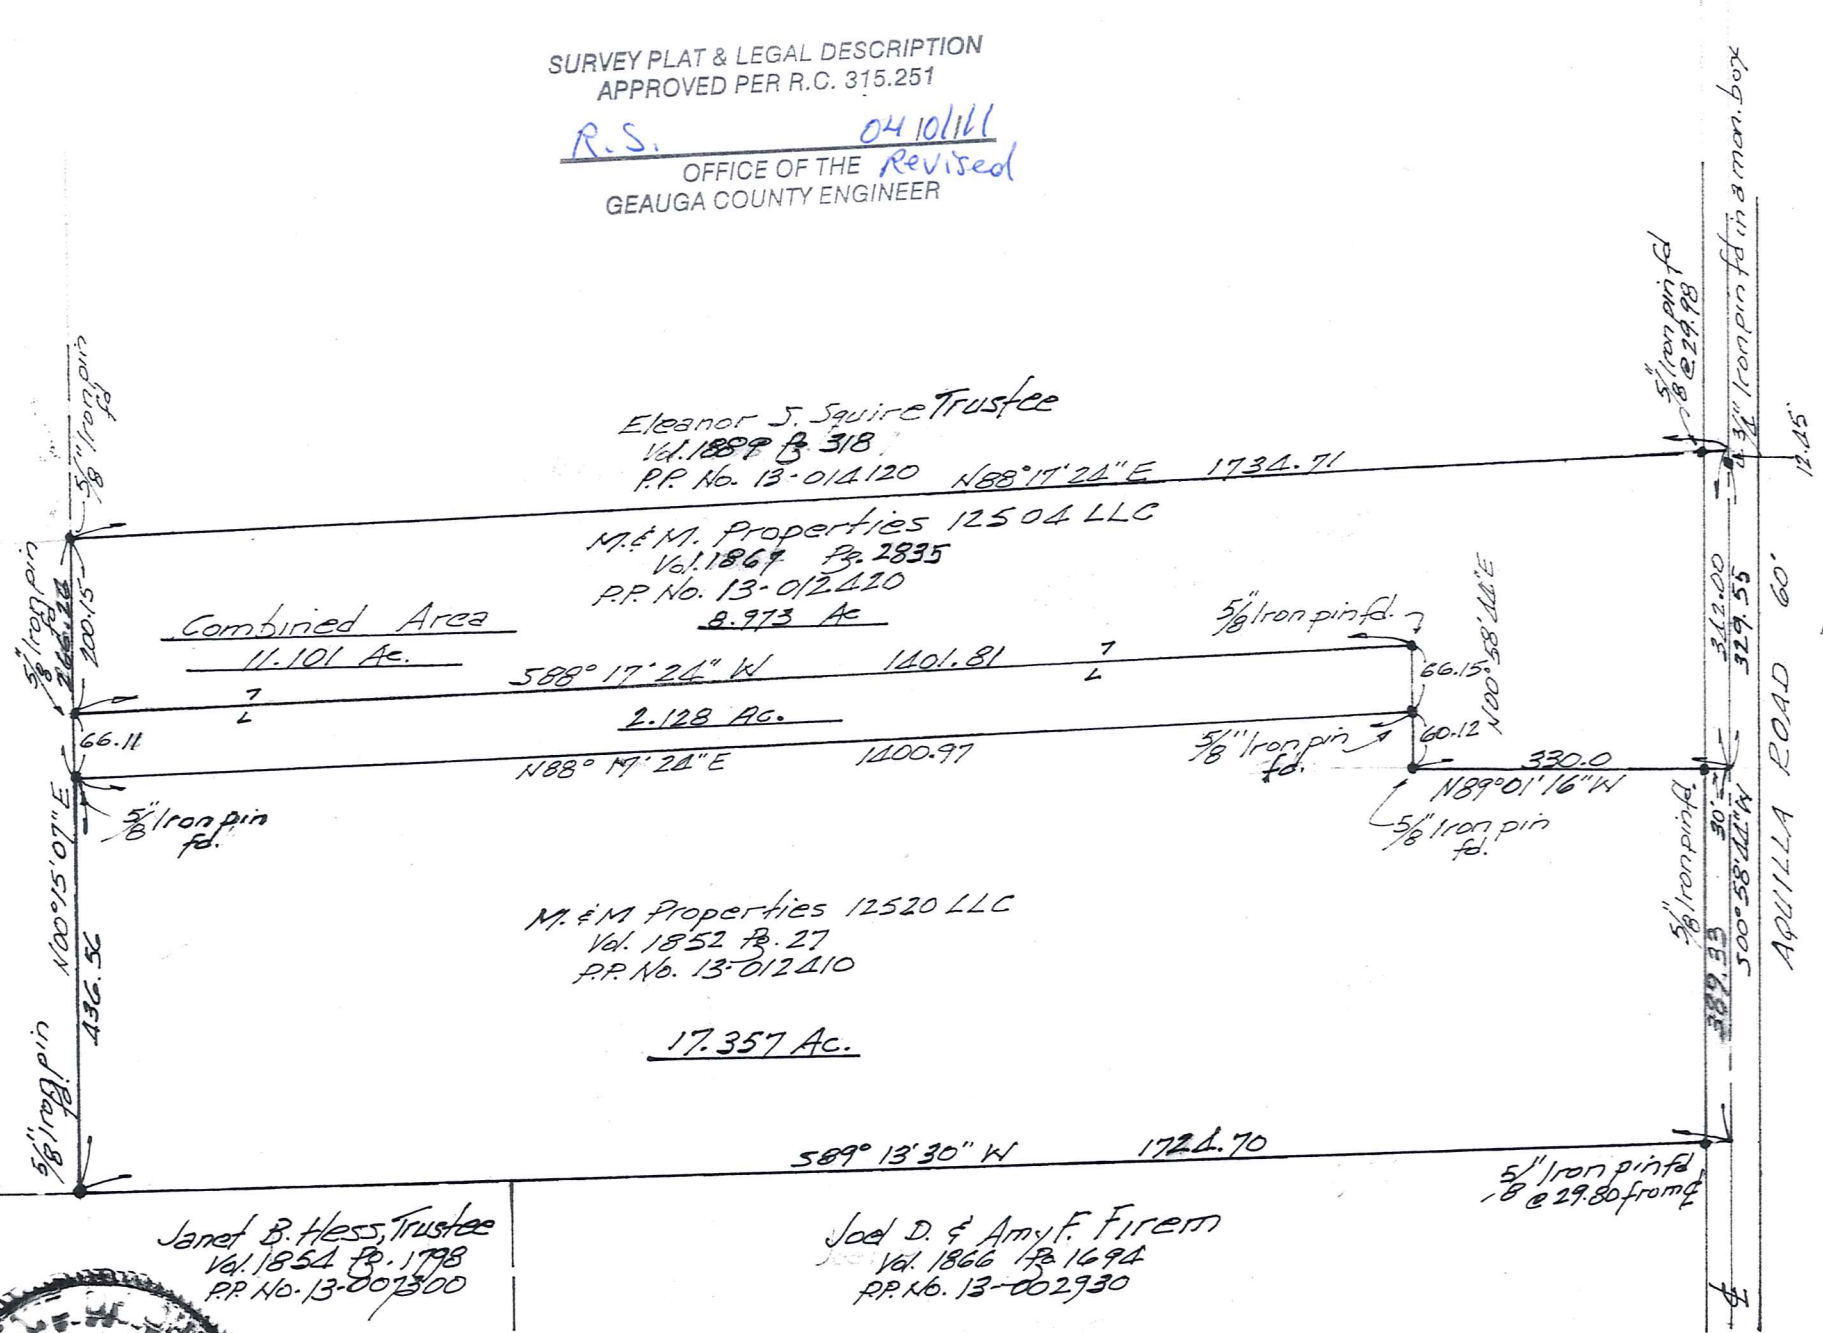 SURVEY PLAT & LEGAL DESCRIPTION
APPROVED PER R.C. 315.251
R.S. 04/01/11
OFFICE OF THE Revised
GEAUGA COUNTY ENGINEER
5/8" Iron pin fd
@ 29.98
3/4" Iron pin fd in a mon. box
12.45'
5/8" Iron pin
fd
Eleanor S. Squire Trustee
Vol. 1889 Pg 318
P.P. No. 13-014120
N88°17'24"E 1734.71
M.&M. Properties 12504 LLC
Vol. 1867 Pg. 2835
P.P. No. 13-012420
8.973 Ac
Combined Area
11.101 Ac.
5/8" Iron pin
fd
266.26
200.15
S88°17'24"W 1401.81
5/8" Iron pin fd.
66.15
N00°58'44"E
342.00
329.55
AQUILLA ROAD 60'
2.128 Ac.
66.11
N88°17'24"E 1400.97
5/8" Iron pin
fd.
60.12
330.0
N89°01'16"W
5/8" Iron pin
fd.
5/8" Iron pin
fd.
5/8" Iron pin fd.
30'
N00°15'07"E
436.56
389.33
S00°58'44"W
M.&M Properties 12520 LLC
Vol. 1852 Pg. 27
P.P. No. 13-012410
17.357 Ac.
5/8" Iron pin
fd.
S89°13'30"W 1724.70
5/8" Iron pin fd
@ 29.80 from ℄
Janet B. Hess, Trustee
Vol. 1854 Pg. 1798
P.P. No. 13-007300
Joel D. & Amy F. Firem
Vol. 1866 Pg 1694
P.P. No. 13-002930
℄